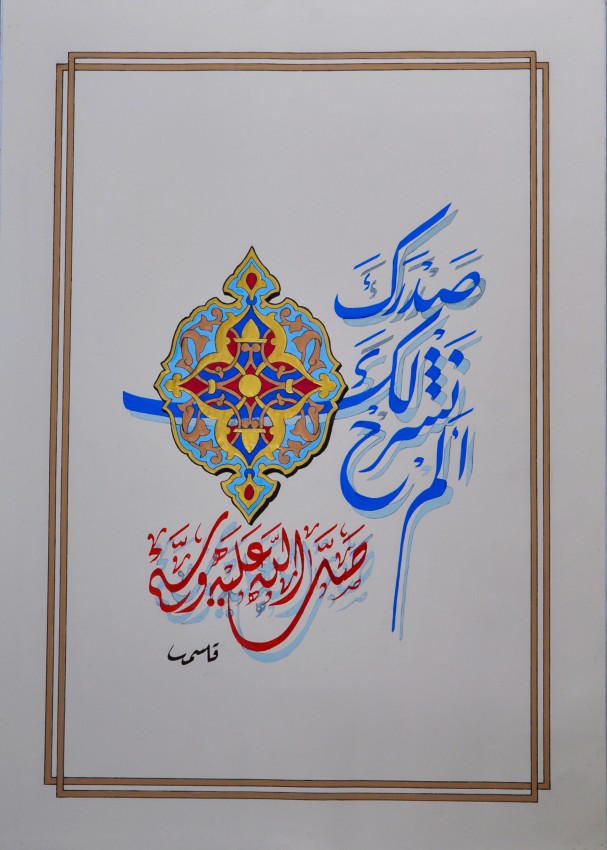 الم نشرح لك صدرك
صلى الله عليه وسلم